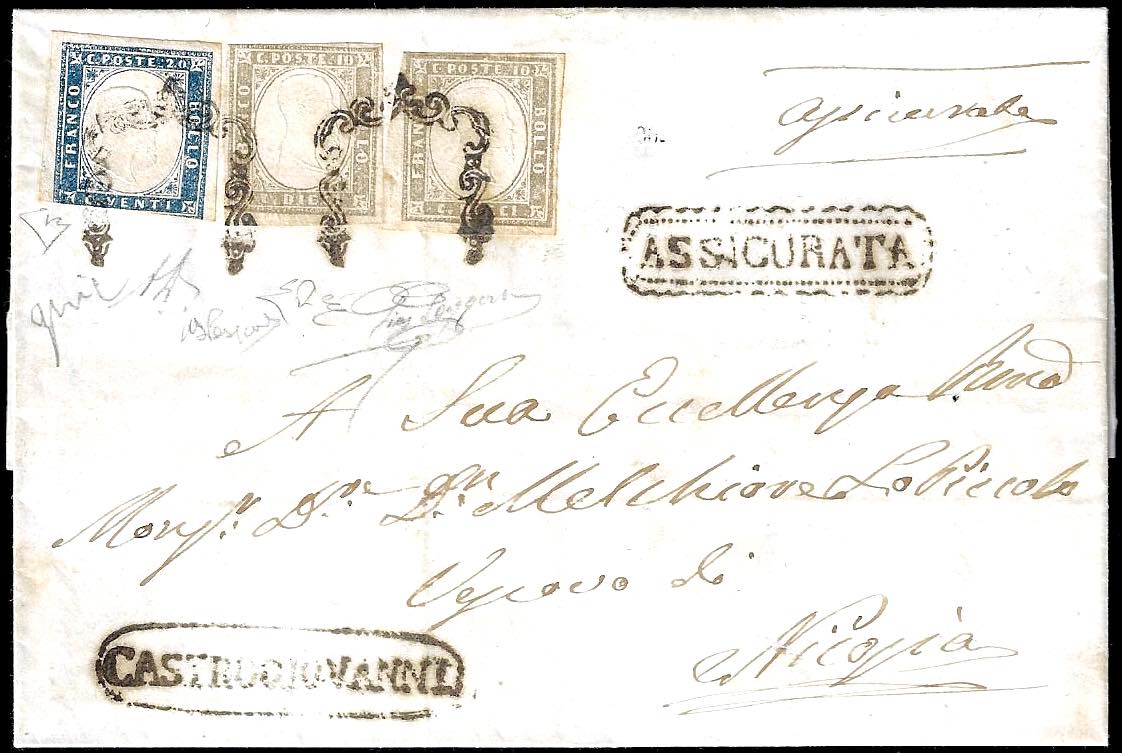 C. POSTE. 20
FRANCO
BOLLO
C. VENTI
C. POSTE. 10
FRANCO
BOLLO
C. DIECI
C. POSTE. 10
FRANCO
BOLLO
C. DIECI
assicurata
ASSICURATA
A Sua Eccellenza Rma
Monsr. Dn. Dn. Melchiore Lo Piccolo
Vescovo di
Nicosia
CASTROGIOVANNI.